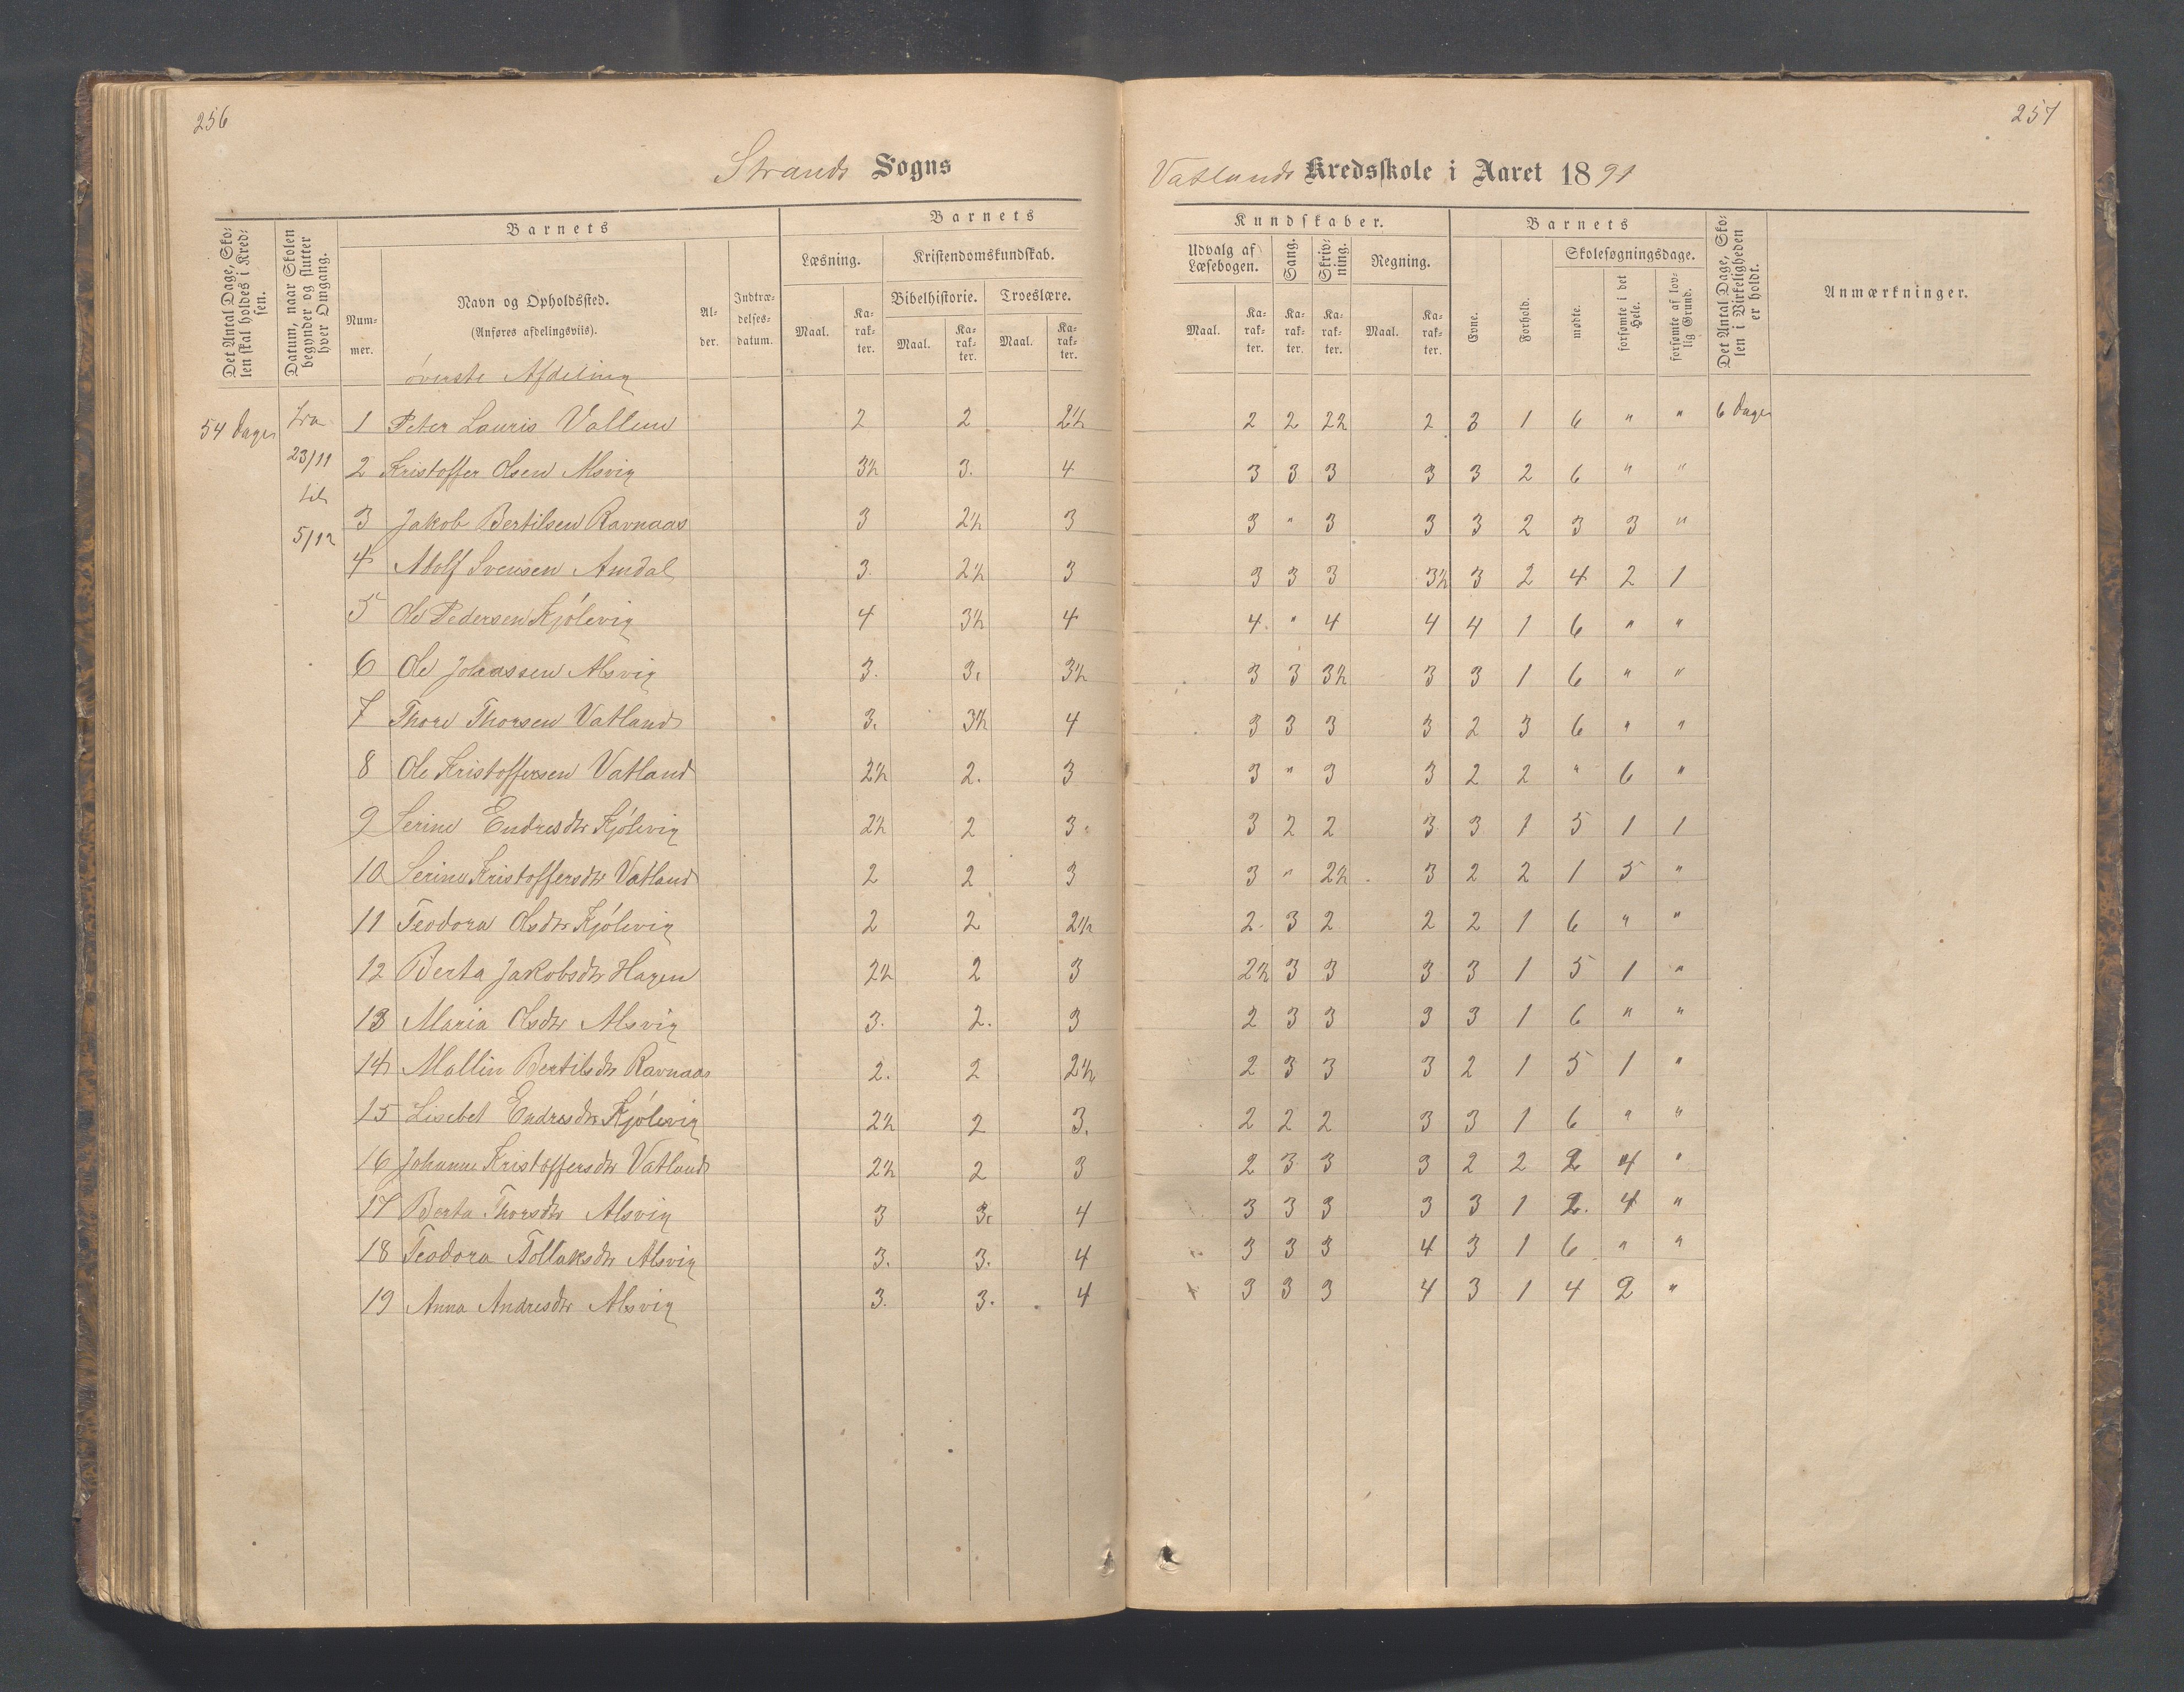 256
257
Strands Sogns
Vatlands Kredsskole i Aaret 1891
Det Antal Dage, Skolen skal holdes i Kredsen.
Datum, naar Skolen begynder og slutter hver Omgang.
Barnets
Nummer.
Navn og Opholdssted.
(Anføres afdelingsviis).
Alder.
Indtrædelsesdatum.
Barnets
Læsning.
Kristendomskundskab.
Maal.
Karakter.
Bibelhistorie.
Troeslære.
Maal.
Karakter.
Maal.
Karakter.
Kundskaber.
Udvalg af Læsebogen.
Sang.
Skrivning.
Regning.
Maal.
Karakter.
Karakter.
Karakter.
Maal.
Karakter.
Barnets
Evne.
Forhold.
Skolesøgningsdage.
mødte.
forsømte i det Hele.
forsømte af lovlig Grund.
Det Antal Dage, Skolen i Virkeligheden er holdt.
Anmærkninger.
øverste Afdeling
54 Dage
fra 23/11 til 5/12
1 Peter Lauris Vallem 2 2 2½ 2 2 2½ 2 3 1 6 " " 6 Dage
2 Kristoffer Olsen Alsvig 3½ 3. 4 3 3 3 3 3 2 6 " "
3 Jakob Bertilsen Ravnaas 3 2½ 3 3 " 3 3 3 2 3 3 "
4 Adolf Svensen Amdal 3. 2½ 3 3 3 3 3½ 3 2 4 2 1
5 Ole Pedersen Kjølevig 4 3½ 4 4. " 4 4 4 1 6 " "
6 Ole Johassen Alsvig 3. 3. 3½ 3 3 3½ 3 3 1 6 " "
7 Thore Thorsen Vatland 3. 3½ 4 3 3 3 3 2 3 6 " "
8 Ole Kristoffersen Vatland 2½ 2. 3 3 " 3 3 2 2 " 6 "
9 Serine Endresdtr Kjølevig 2½ 2 3. 3 2 2 3 3 1 5 1 1
10 Serine Kristoffersdtr Vatland 2 2 3 3 " 2½ 3 2 2 1 5 "
11 Teodora Olsdtr Kjølevig 2 2 2½ 2. 3 2 2 2 1 6 " "
12 Berta Jakobsdtr Hagen 2½ 2 3 2½ 3 3 3 3 1 5 1 "
13 Maria Olsdtr Alsvig 3. 2. 3 2 3 3 3 3 1 6 " "
14 Mallin Bertilsdtr Ravnaas 2. 2 2½ 2 3 3 3 2 1 5 1 "
15 Lisebet Endresdtr Kjølevig 2½ 2 3. 2 2 2 3 3 1 6 " "
16 Johanne Kristoffersdtr Vatland 2½ 2 3 2 3 3 3 2 2 2 4 "
17 Berta Thorsdtr Alsvig 3 3. 4 3 3 3 3 3 1 2. 4 "
18 Teodora Tollaksdtr Alsvig 3. 3. 4 3 3 3 4 3 1 6 " "
19 Anna Andresdtr Alsvig 3. 3. 4 3 3 3 4 3 1 4 2 "